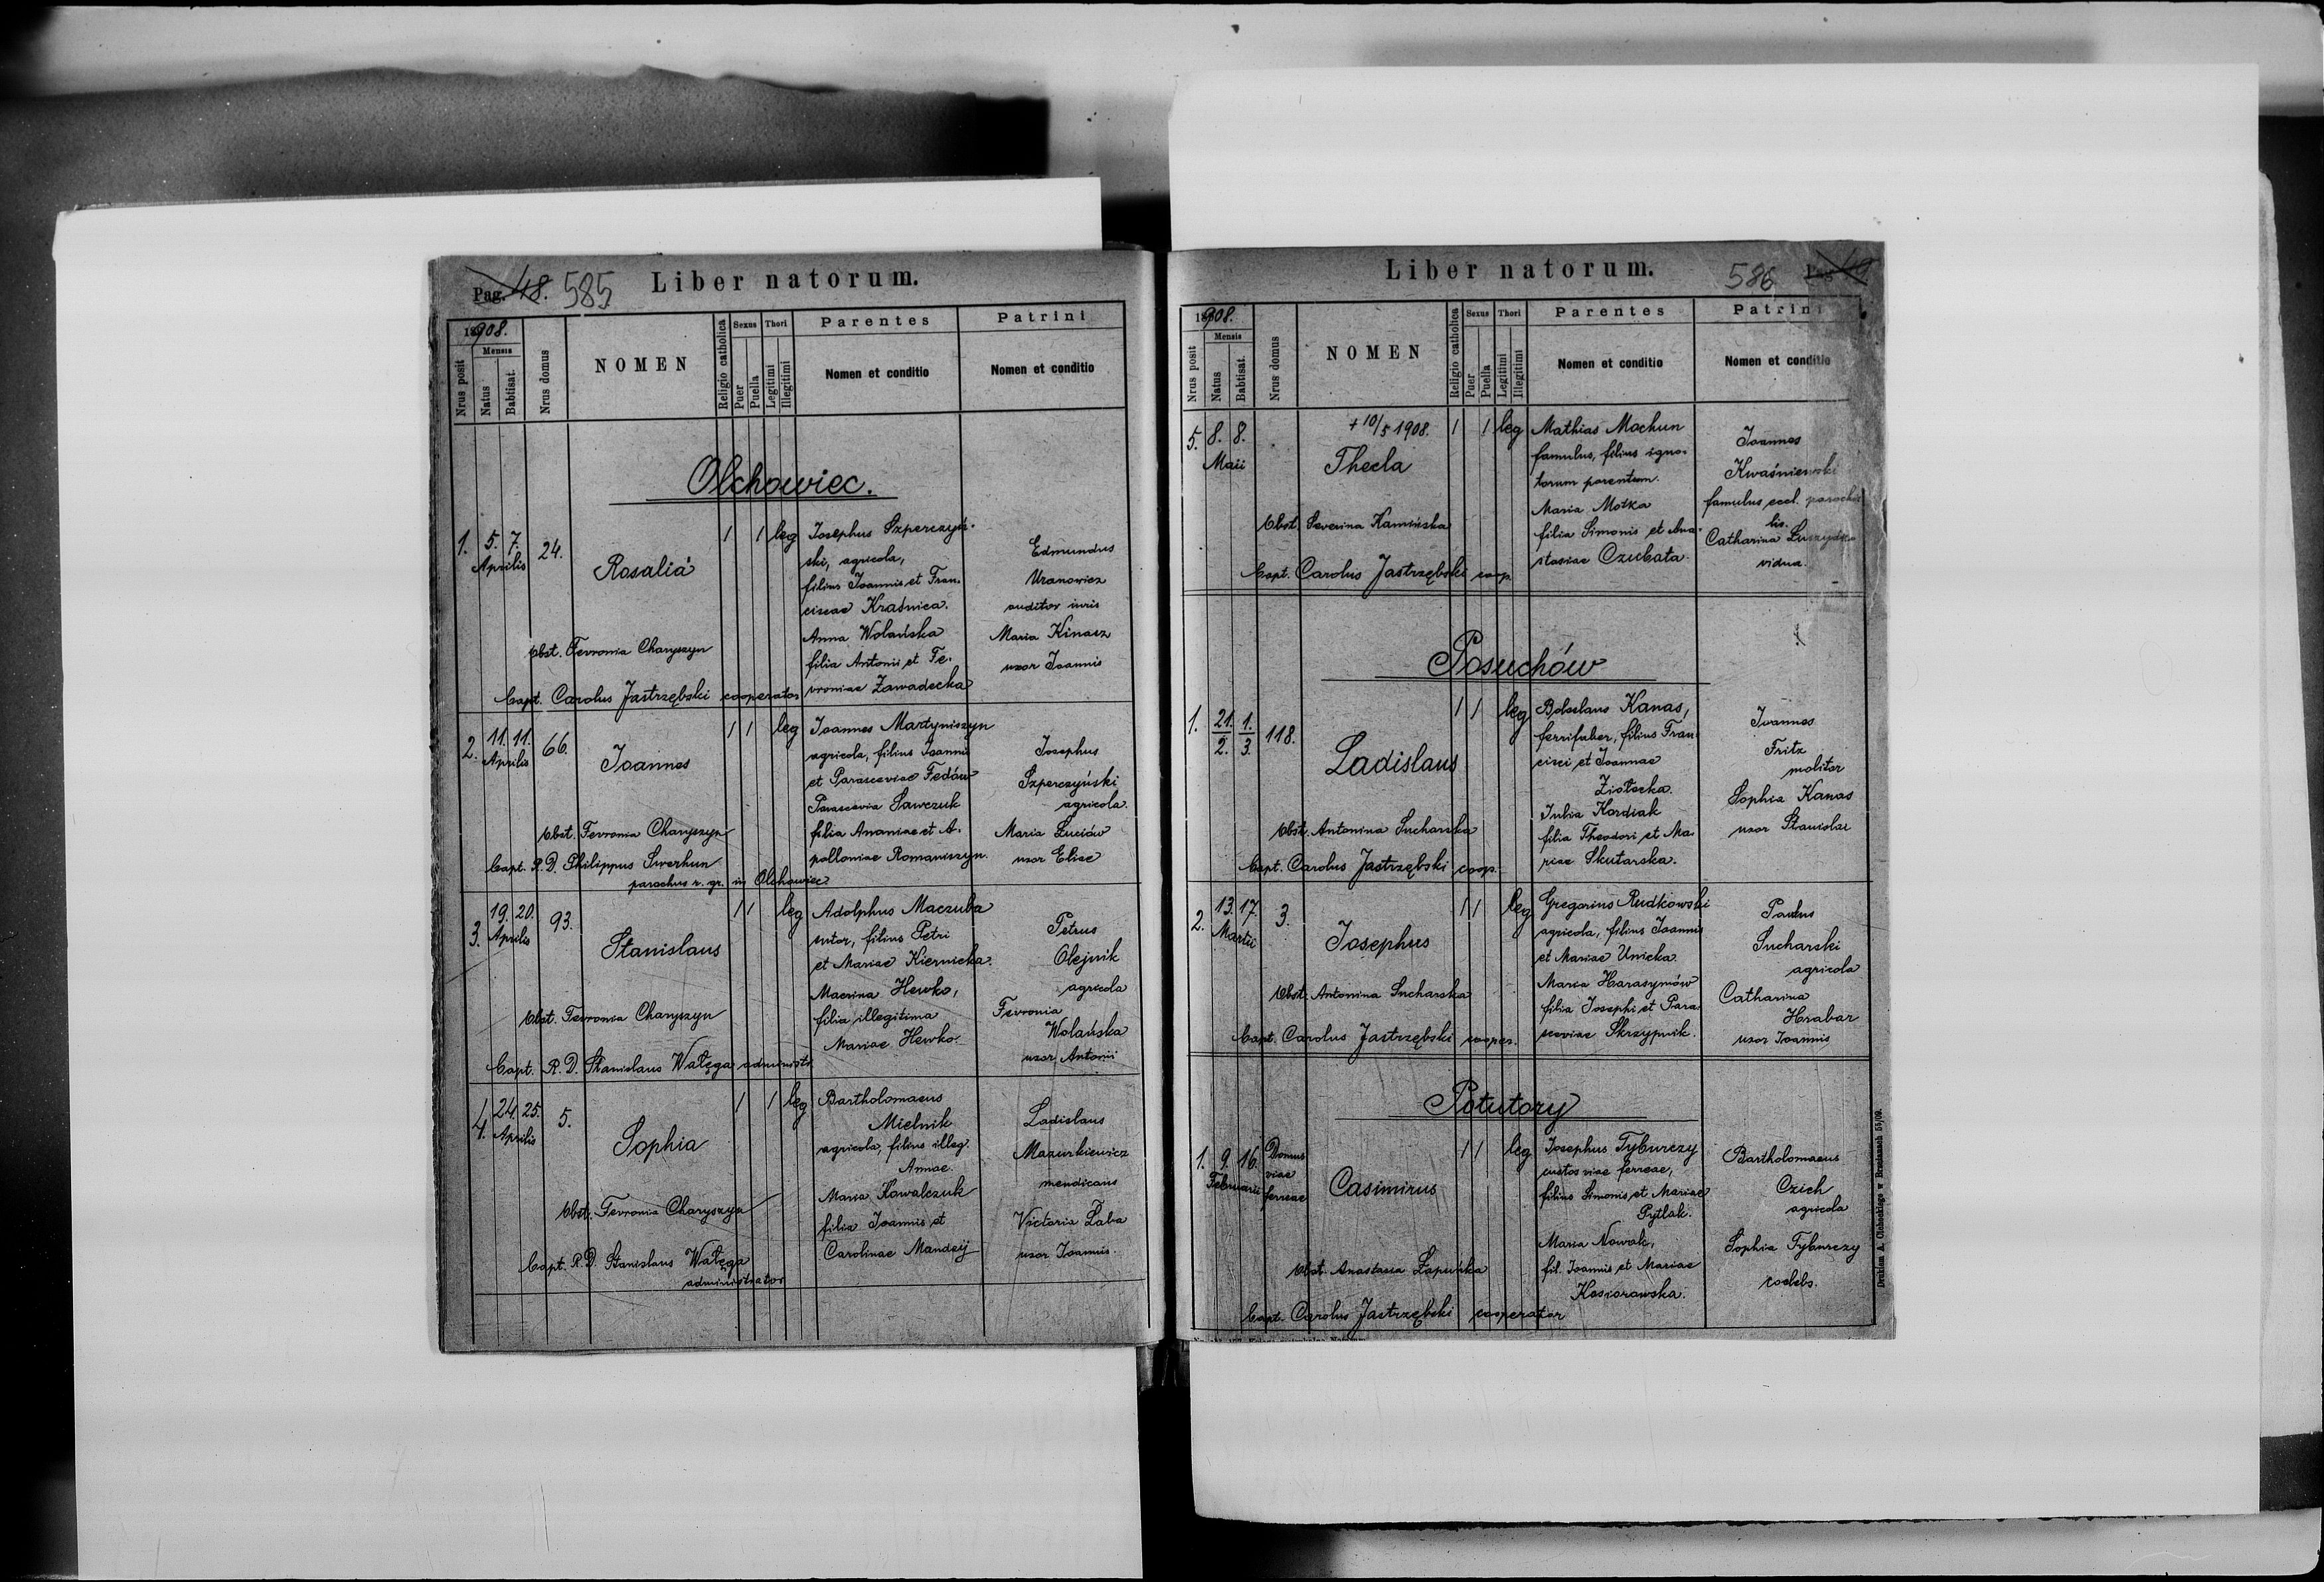 Pag. 48. 585 Liber natorum.
1908.
Mensis
Nrus posit
Natus
Babtisat.
Nrus domus
NOMEN
Religio catholica
Sexus
Puer
Puella
Thori
Legitimi
Illegitimi
Parentes
Nomen et conditio
Patrini
Nomen et conditio
Olchowiec.
1. 5. 7. Aprilis 24.
Rosalia
1 1 leg
Josephus Szperczyń-
ski, agricola,
filius Joannis et Fran-
ciscae Kraśnica.
Anna Wolańska
filia Antonii et Fe-
vroniae Zawadecka
Edmundus
Uranowicz
auditor iuris
Maria Kinasz
uxor Joannis
Obst. Fevronia Charyszyn
Bapt. Carolus Jastrzębski cooperator
2. 11. 11. Aprilis 66.
Joannes
1 1 leg
Joannes Martyniszyn
agricola, filius Joannis
et Parasceviae Fedów
Parascevia Sawczuk
filia Ananiae et A-
polloniae Romaniszyn.
Josephus
Szperczyński
agricola.
Maria Łuciów
uxor Eliae
Obst. Fevronia Charyszyn
Bapt. R. D. Philippus Swerhun
parochus r. gr. in Olchowiec
3. 19. 20. Aprilis 93.
Stanislaus
1 1 leg
Adolphus Maczuba
sutor, filius Petri
et Mariae Kiernicka.
Macrina Hewko,
filia illegitima
Mariae Hewko.
Petrus
Olejnik
agricola
Fevronia
Wolańska
uxor Antonii
Obst. Fevronia Charyszyn
Bapt. R. D. Stanislaus Wałęga administr.
4. 24. 25. Aprilis 5.
Sophia
1 1 leg
Bartholomaeus
Mielnik
agricola, filius illeg.
Annae.
Maria Kowalczuk
filia Joannis et
Carolinae Mandzij
Ladislaus
Mazurkiewicz
mendicans
Victoria Łaba
uxor Joannis.
Obst. Fevronia Charyszyn
Bapt. R. D. Stanislaus Wałęga
administrator
Liber natorum. 586 Pag 49
1908.
Mensis
Nrus posit
Natus
Babtisat.
Nrus domus
NOMEN
Religio catholica
Sexus
Puer
Puella
Thori
Legitimi
Illegitimi
Parentes
Nomen et conditio
Patrini
Nomen et conditio
5. 8. 8. Maii
+ 10/5 1908.
Thecla
1 1 leg
Mathias Mochun
famulus, filius igno-
torum parentum.
Maria Motka
filia Simonis et Ana-
stasiae Czubata.
Joannes
Kwaśniewski
famulus eccl. parochia
lis.
Catharina
vidua.
Obst. Severina Kamińska
Bapt. Carolus Jastrzębski coop.
Posuchów
1. 21./2. 1./3. 118.
Ladislaus
1 1 leg
Boleslaus Kanas,
ferrifaber, filius Fran
cisci et Joannae
Ziółecka.
Julia Kordiak
filia Theodori et Ma-
riae Skutarska.
Joannes
Fritz
molitor
Sophia Kanas
uxor Stanislai
Obst. Antonina Sucharska
Bapt. Carolus Jastrzębski coop.
2. 13. 17. Martii 3.
Josephus
1 1 leg
Gregorius Rudkowski
agricola, filius Joannis
et Mariae Unicka.
Maria Harasymów
filia Josephi et Para-
sceviae Skrzypnik.
Paulus
Sucharski
agricola
Catharina
Hrabar
uxor Joannis
Obst. Antonina Sucharska
Bapt. Carolus Jastrzębski cooper.
Potutory
1. 9. 16. Februarii
Domus
viae
ferreae
Casimirus
1 1 leg
Josephus Tyburczy
custos viae ferreae,
filius Simonis et Mariae
Pytlak.
Maria Nowak,
fil. Joannis et Mariae
Kosiorowska.
Bartholomaeus
Czich
agricola
Sophia Tyburczy
coelebs.
Obst. Anastasia Łapińska
Bapt. Carolus Jastrzębski cooperator